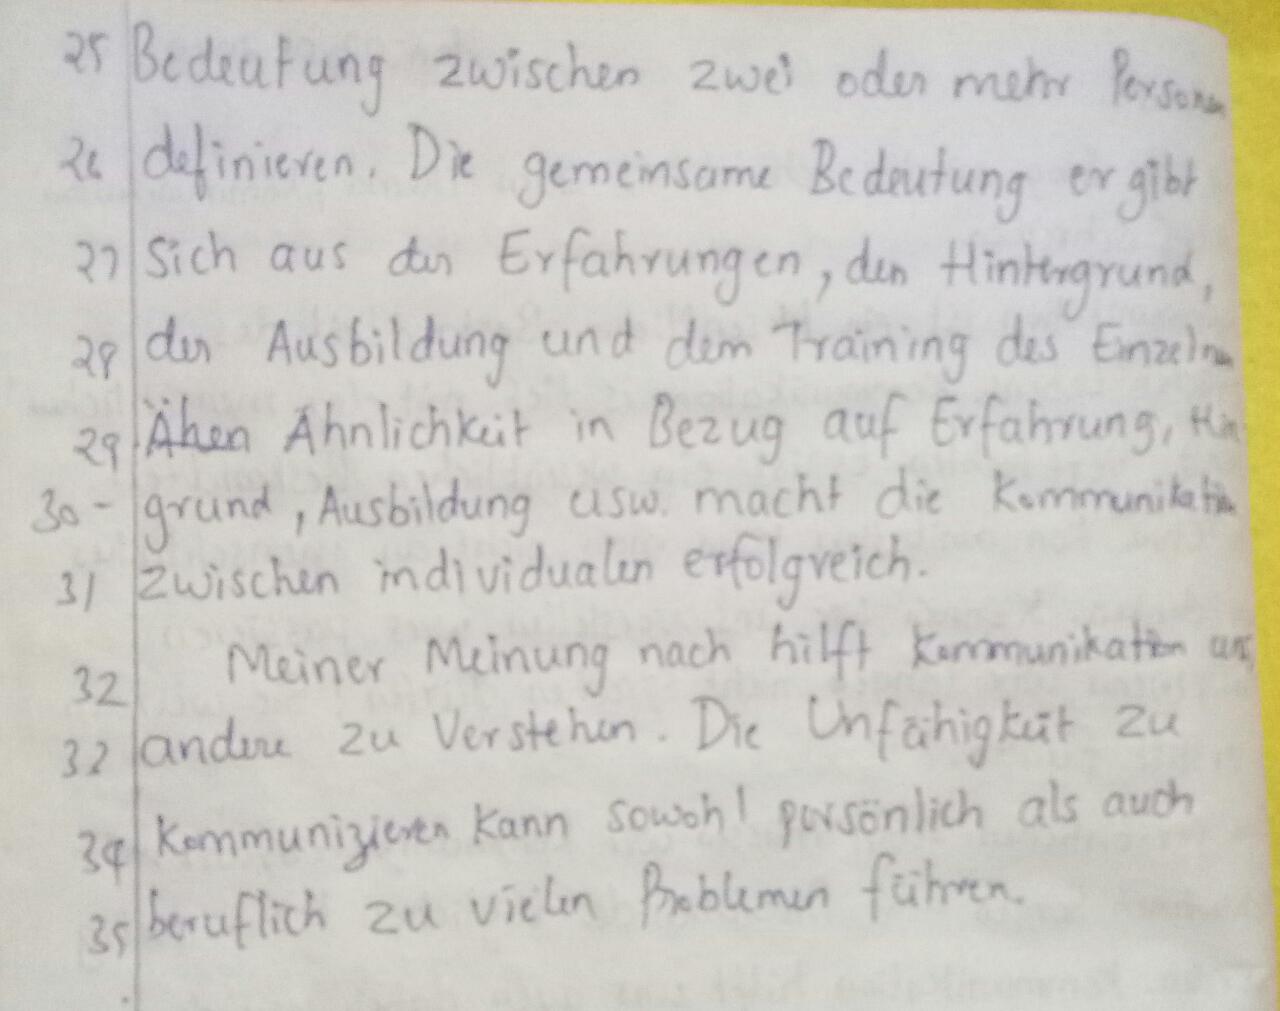 25 Bedeutung zwischen zwei oder mehr Personen
26 definieren. Die gemeinsame Bedeutung ergibt
27 sich aus den Erfahrungen, den Hintergrund,
28 der Ausbildung und dem Training des Einzelnen
29 Ähnlichkeit in Bezug auf Erfahrung, Hin
30 - grund, Ausbildung usw. macht die Kommunikation
31 zwischen individualen erfolgreich.
32 Meiner Meinung nach hilft Kommunikation uns
33 andere zu Verstehen. Die Unfähigkeit zu
34 Kommunizieren kann sowohl persönlich als auch
35 beruflich zu vielen Problemen führen.